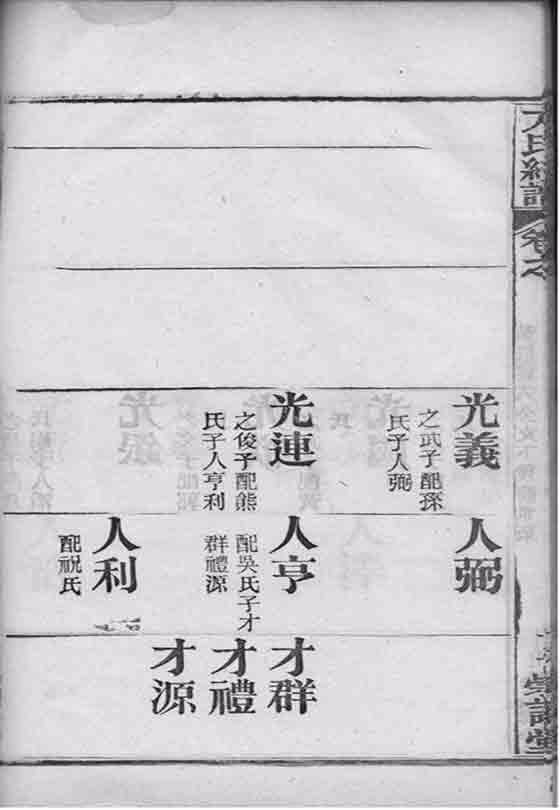 卷之
光義
之武子配孫
氏子人弼
光連
之俊子配熊
氏子人亨利
人弼
人亨
配吳氏子才
群禮源
人利
配祝氏
才群
才禮
才源